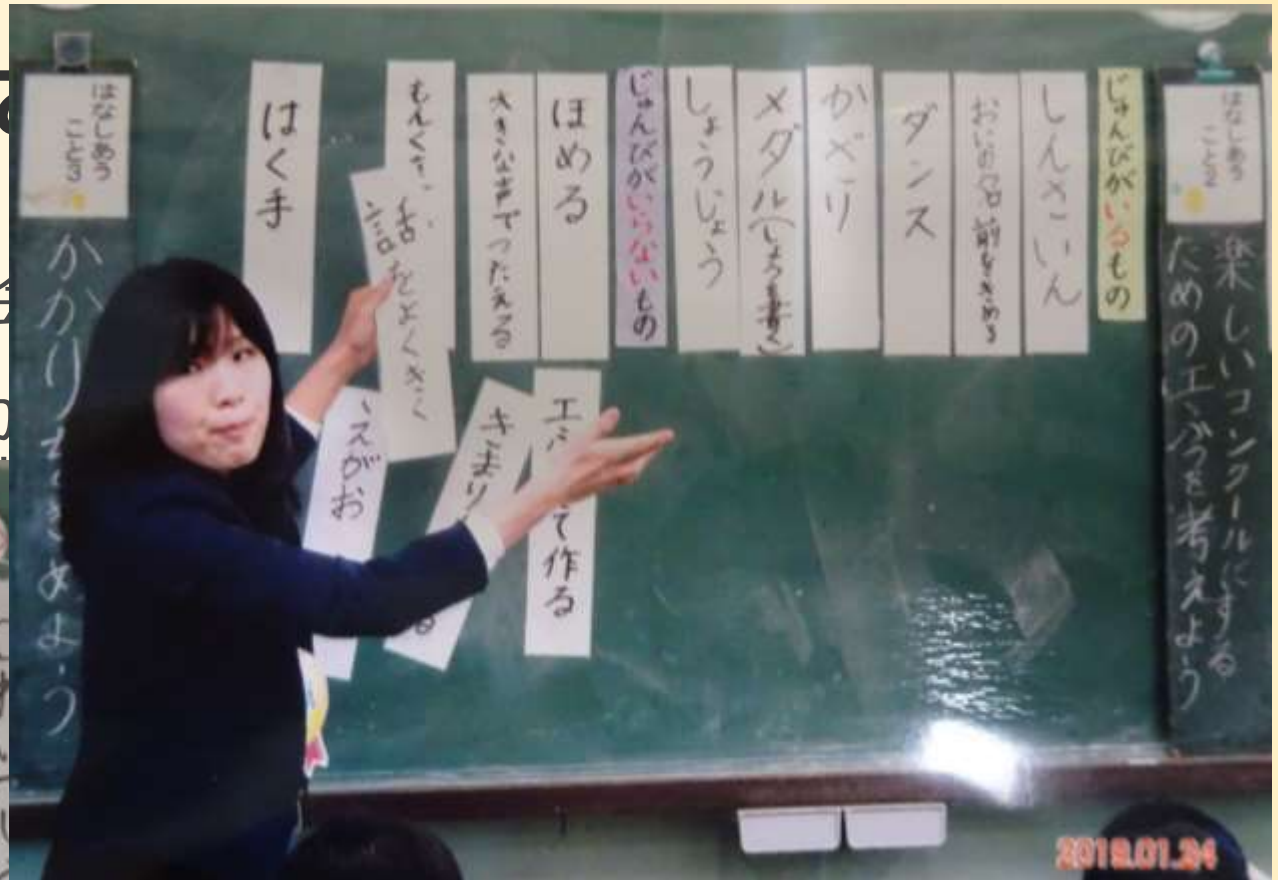 はなしあう
こと2
楽しいコンクールにする
ための工ふうを考えよう
じゅんびがいるもの
しんさいん
おいわ名前をきめる
ダンス
かざり
メダル(しょう書く)
しょうじょう
じゅんびがいらないもの
ほめる
大きな声でつたえる
もんく
話をよくきく
はく手
て作る
きまり
る
えがお
はなしあう
こと3
かかりをきめよう
2019.01.24